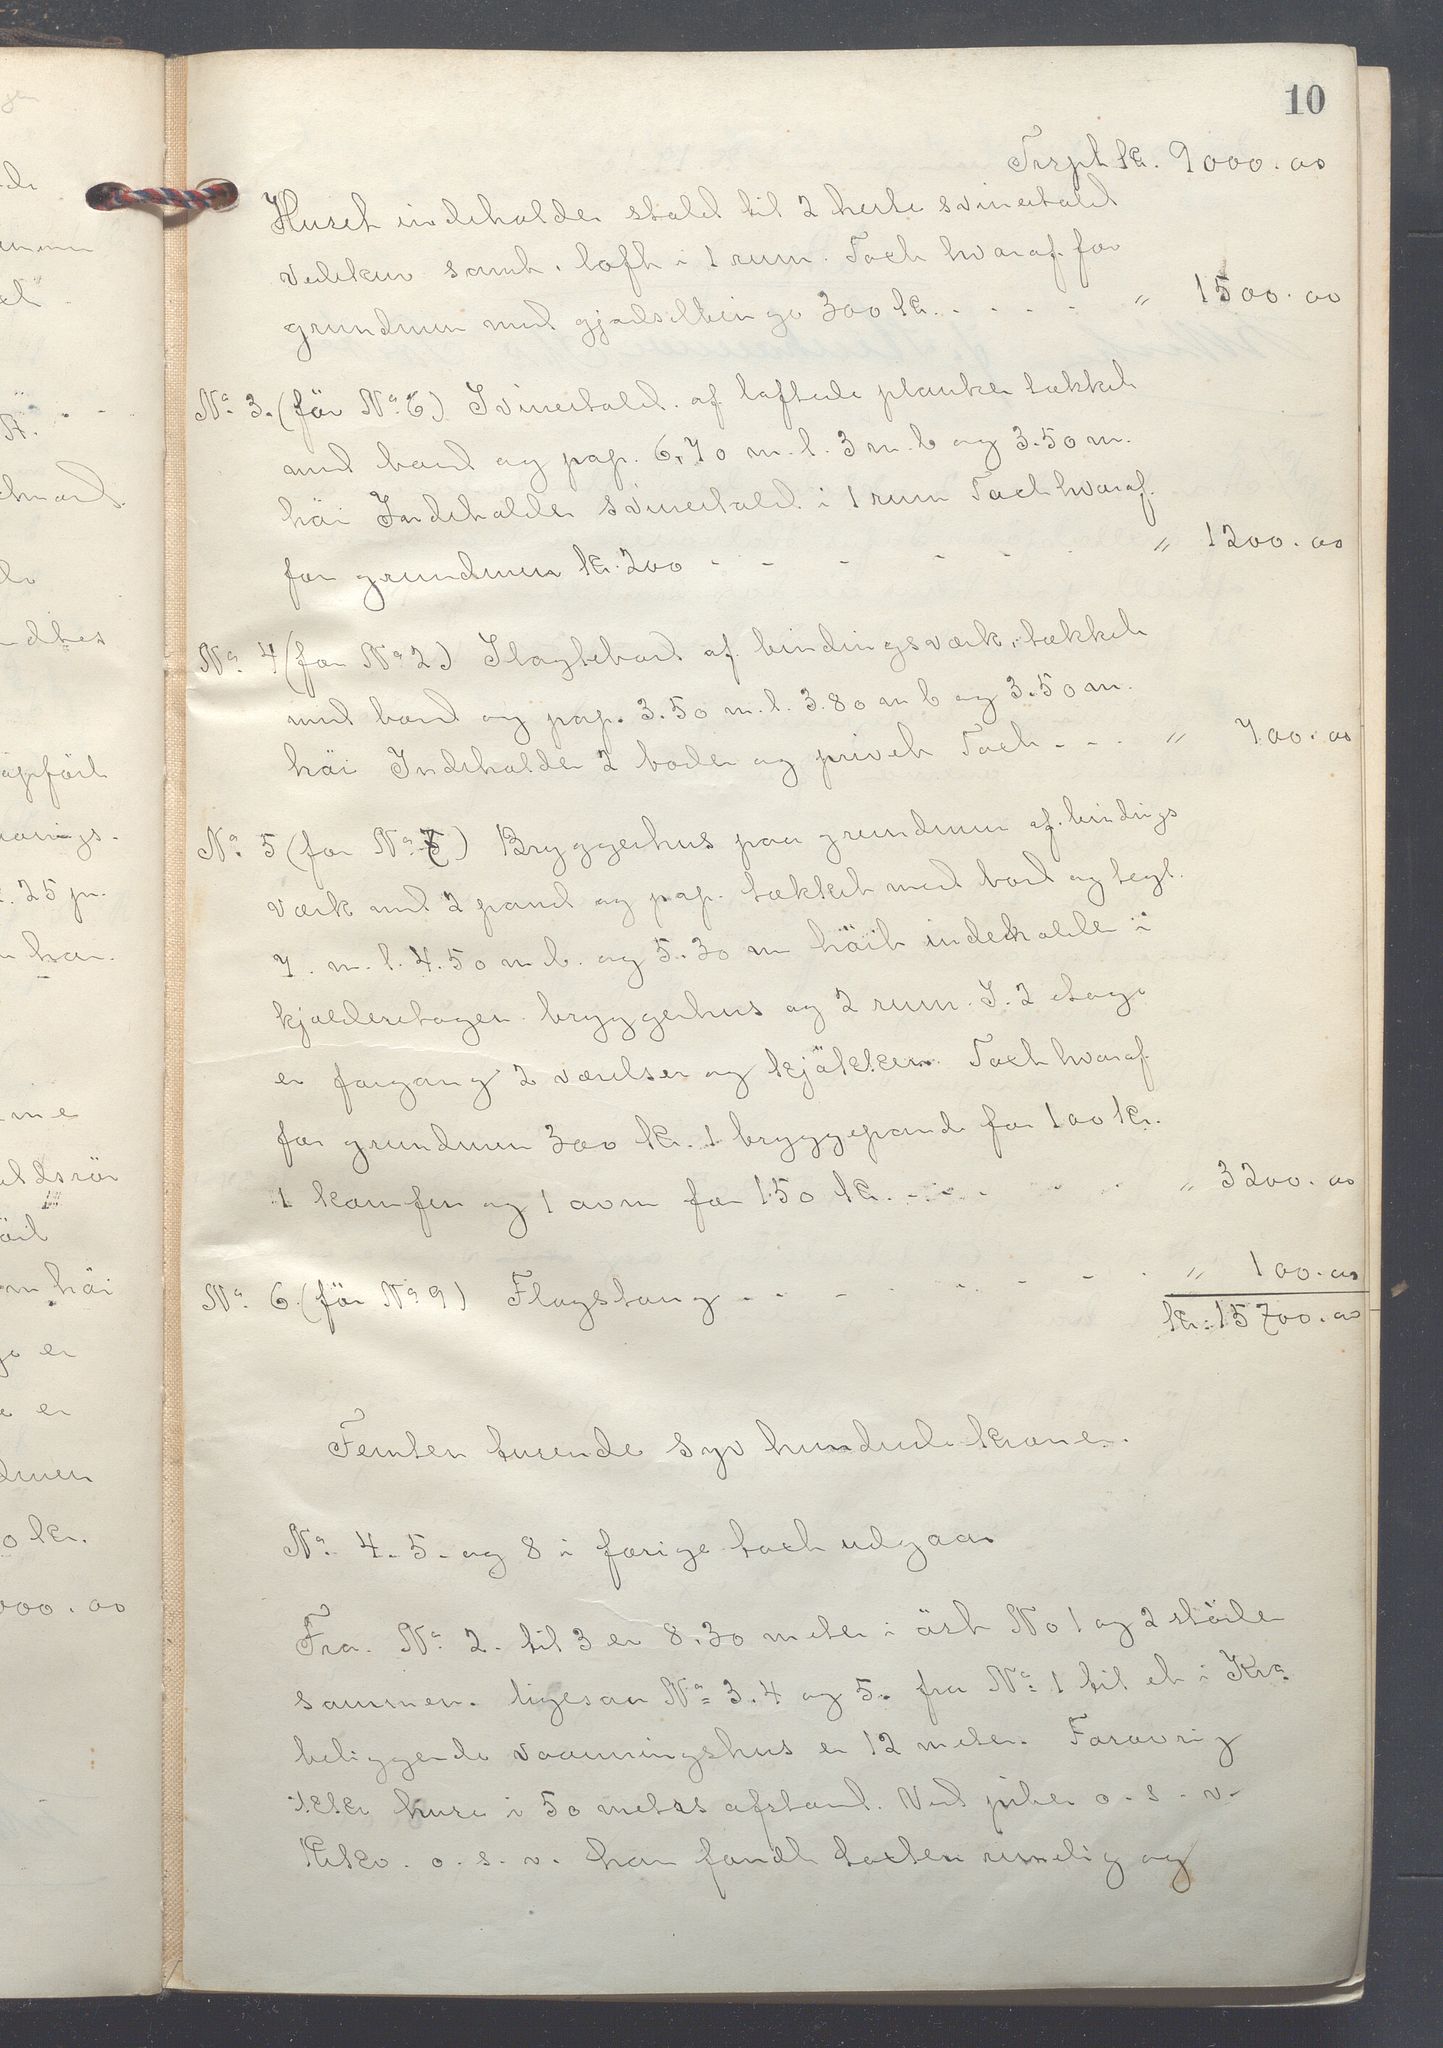 10
Trspt kr. 9000.00
Huset indeholder stald til 2 heste svinestald
vedskur samt loft i 1 rum. Taxt hvoraf for
grundmur med gjødselbinge 300 kr. . . . . " 1500.00
No. 3. (før No 6) Svinestald af laftede planker tækket
med bord og pap. 6,70 m. l. 3 m. b og 3.50 m.
høi Indeholder svinestald i 1 rum Taxt hvoraf
for grundmur kr. 200 - - - - - - " 1200.00
No. 4 (før No 2) Slagtebod af bindingsværk, tækket
med bord og pap. 3.50 m. l. 3.80 m b og 3.50 m.
høi Indeholder 2 boder og privet Taxt - - - " 700.00
No. 5 (før No 7) Bryggerhus paa grundmur af bindings
værk med 2 panel og pap. tækket med bord og tegl.
7. m. l. 4.50 m b. og 5.30 m høit indeholder i
kjælderetagen bryggerhus og 2 rum. I. 2 etage
er forgang 2 værelser og kjøkken. Taxt hvoraf
for grundmur 300 kr. 1 bryggepande for 100 kr.
1 komfur og 1 ovn for 150 kr. - - - - - " 3200.00
No. 6. (før No 9) Flagstang - - - - - - - " 100.00
kr: 15700.00
Femten tusende syv hundrede kroner.
No. 4. 5. og 8 i forrige taxt udgaar
Fra. No. 2. til 3 er 8.30 meter i øst No 1 og 2 støder
sammen. ligesaa No 3. 4 og 5. fra No 1 til et i
beliggende vaaningshus er 12 meter. Forøvrig
ikke huse i 50 meters afstand. Ved piber o. s. v.
o. s. v. han fandt taxten rimelig og